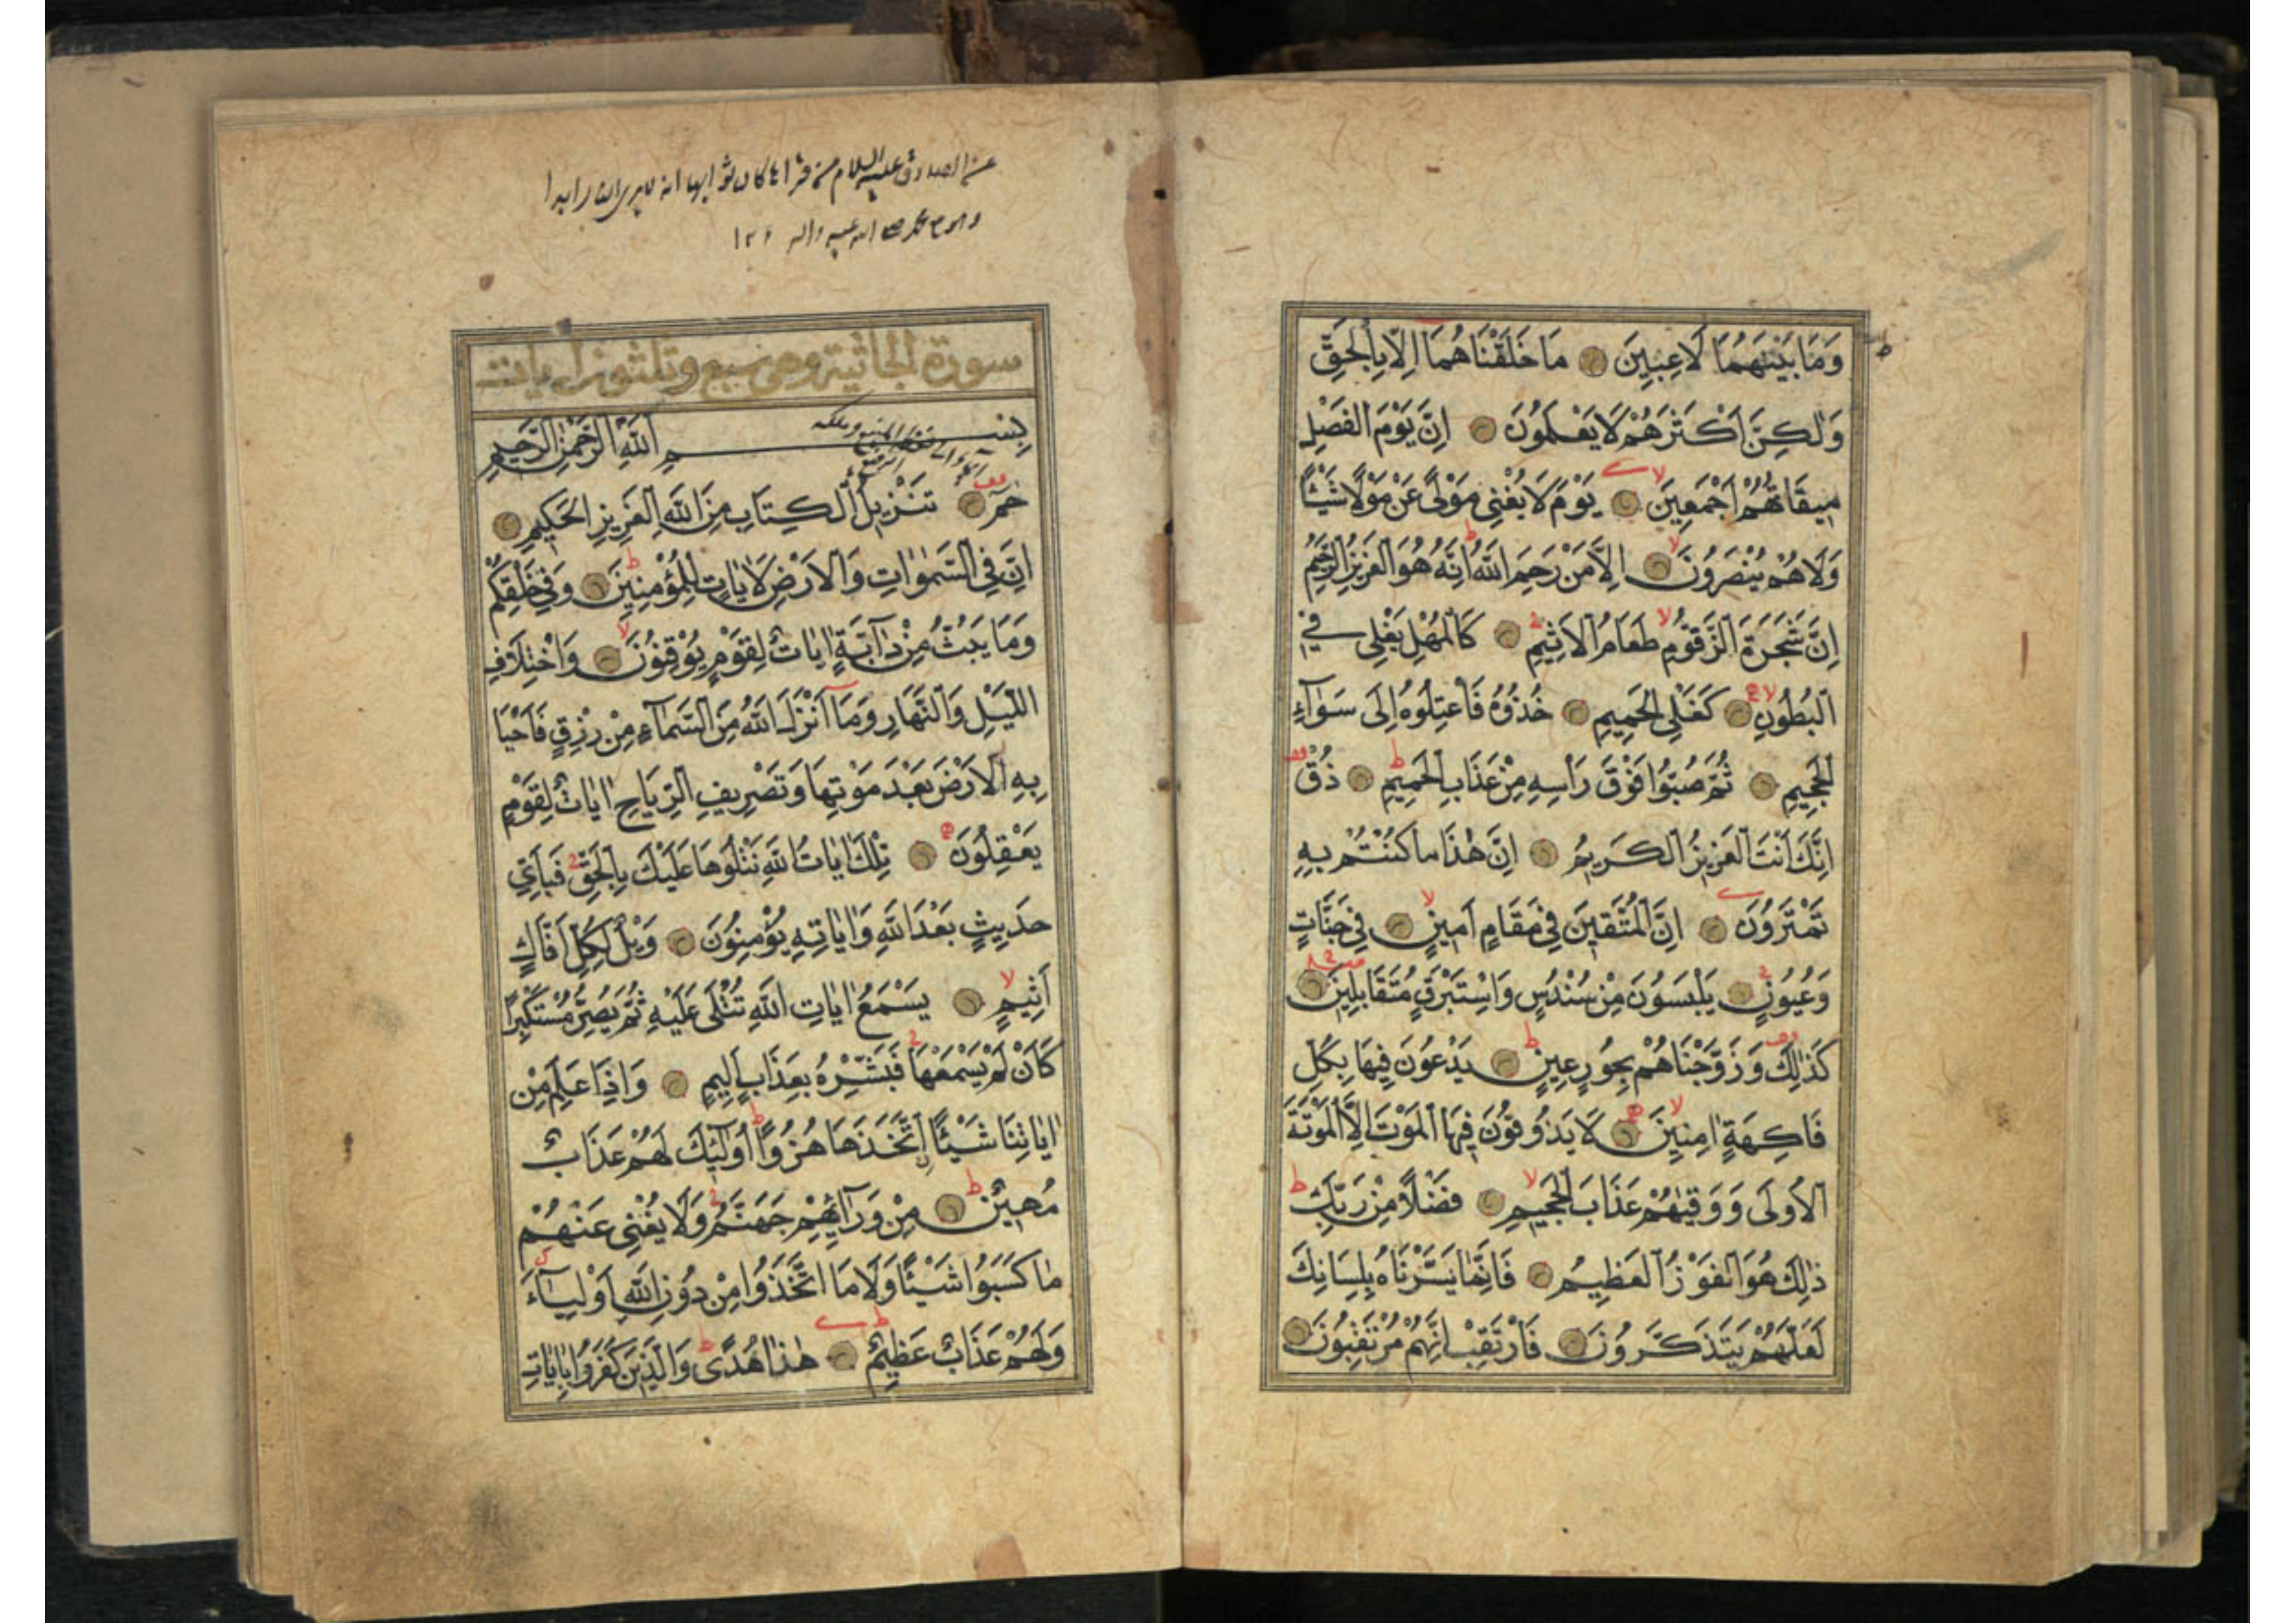 وَمَا بَيْنَهُمَا لَاعِبِينَ مَا خَلَقْنَاهُمَا اِلَّا بِالْحَقِّ
وَلٰكِنَّ اَكْثَرَهُمْ لَا يَعْلَمُونَ اِنَّ يَوْمَ الْفَصْلِ
مِيقَاتُهُمْ اَجْمَعِينَ يَوْمَ لَا يُغْنِى مَوْلًى عَنْ مَوْلًا شَيْئًا
وَلَا هُمْ يُنْصَرُونَ اِلَّا مَنْ رَحِمَ اللّٰهُ اِنَّهُ هُوَ الْعَزِيزُ الرَّحِيمُ
اِنَّ شَجَرَةَ الزَّقُّومِ طَعَامُ الْاَثِيمِ كَالْمُهْلِ يَغْلِى فِى
الْبُطُونِ كَغَلْىِ الْحَمِيمِ خُذُوهُ فَاعْتِلُوهُ اِلَى سَوَآءِ
الْجَحِيمِ ثُمَّ صُبُّوا فَوْقَ رَاْسِهِ مِنْ عَذَابِ الْحَمِيمِ ذُقْ
اِنَّكَ اَنْتَ الْعَزِيزُ الْكَرِيمُ اِنَّ هٰذَا مَا كُنْتُمْ بِهِ
تَمْتَرُونَ اِنَّ الْمُتَّقِينَ فِى مَقَامٍ اَمِينٍ فِى جَنَّاتٍ
وَعُيُونٍ يَلْبَسُونَ مِنْ سُنْدُسٍ وَاِسْتَبْرَقٍ مُتَقَابِلِينَ
كَذٰلِكَ وَزَوَّجْنَاهُمْ بِحُورٍ عِينٍ يَدْعُونَ فِيهَا بِكُلِّ
فَاكِهَةٍ اٰمِنِينَ لَا يَذُوقُونَ فِيهَا الْمَوْتَ اِلَّا الْمَوْتَةَ
الْاُولَى وَوَقٰيهُمْ عَذَابَ الْجَحِيمِ فَضْلًا مِنْ رَبِّكَ
ذٰلِكَ هُوَ الْفَوْزُ الْعَظِيمُ فَاِنَّمَا يَسَّرْنَاهُ بِلِسَانِكَ
لَعَلَّهُمْ يَتَذَكَّرُونَ فَارْتَقِبْ اِنَّهُمْ مُرْتَقِبُونَ
سورة الجاثية وهى سبع وثلثون ايات
بِسْمِ اللّٰهِ الرَّحْمٰنِ الرَّحِيمِ
حٰمٓ تَنْزِيلُ الْكِتَابِ مِنَ اللّٰهِ الْعَزِيزِ الْحَكِيمِ
اِنَّ فِى السَّمٰوَاتِ وَالْاَرْضِ لَاٰيَاتٍ لِلْمُؤْمِنِينَ وَفِى خَلْقِكُمْ
وَمَا يَبُثُّ مِنْ دَآبَّةٍ اٰيَاتٌ لِقَوْمٍ يُوقِنُونَ وَاخْتِلَافِ
اللَّيْلِ وَالنَّهَارِ وَمَآ اَنْزَلَ اللّٰهُ مِنَ السَّمَآءِ مِنْ رِزْقٍ فَاَحْيَا
بِهِ الْاَرْضَ بَعْدَ مَوْتِهَا وَتَصْرِيفِ الرِّيَاحِ اٰيَاتٌ لِقَوْمٍ
يَعْقِلُونَ تِلْكَ اٰيَاتُ اللّٰهِ نَتْلُوهَا عَلَيْكَ بِالْحَقِّ فَبِاَىِّ
حَدِيثٍ بَعْدَ اللّٰهِ وَاٰيَاتِهِ يُؤْمِنُونَ وَيْلٌ لِكُلِّ اَفَّاكٍ
اَثِيمٍ يَسْمَعُ اٰيَاتِ اللّٰهِ تُتْلَى عَلَيْهِ ثُمَّ يُصِرُّ مُسْتَكْبِرًا
كَاَنْ لَمْ يَسْمَعْهَا فَبَشِّرْهُ بِعَذَابٍ اَلِيمٍ وَاِذَا عَلِمَ مِنْ
اٰيَاتِنَا شَيْئًا اتَّخَذَهَا هُزُوًا اُولٰٓئِكَ لَهُمْ عَذَابٌ
مُهِينٌ مِنْ وَرَآئِهِمْ جَهَنَّمُ وَلَا يُغْنِى عَنْهُمْ
مَا كَسَبُوا شَيْئًا وَلَا مَا اتَّخَذُوا مِنْ دُونِ اللّٰهِ اَوْلِيَآءَ
وَلَهُمْ عَذَابٌ عَظِيمٌ هٰذَا هُدًى وَالَّذِينَ كَفَرُوا بِاٰيَاتِ